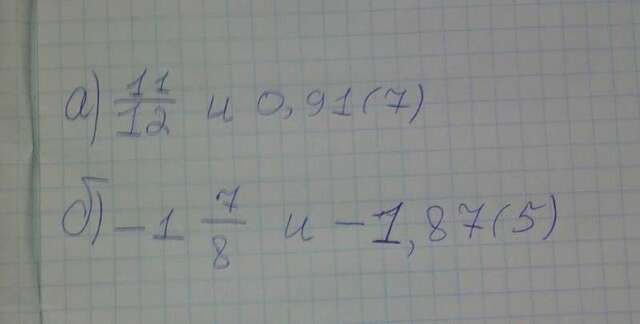 а) 11/12 и 0,91(7)
б) -1 7/8 и -1,87(5)